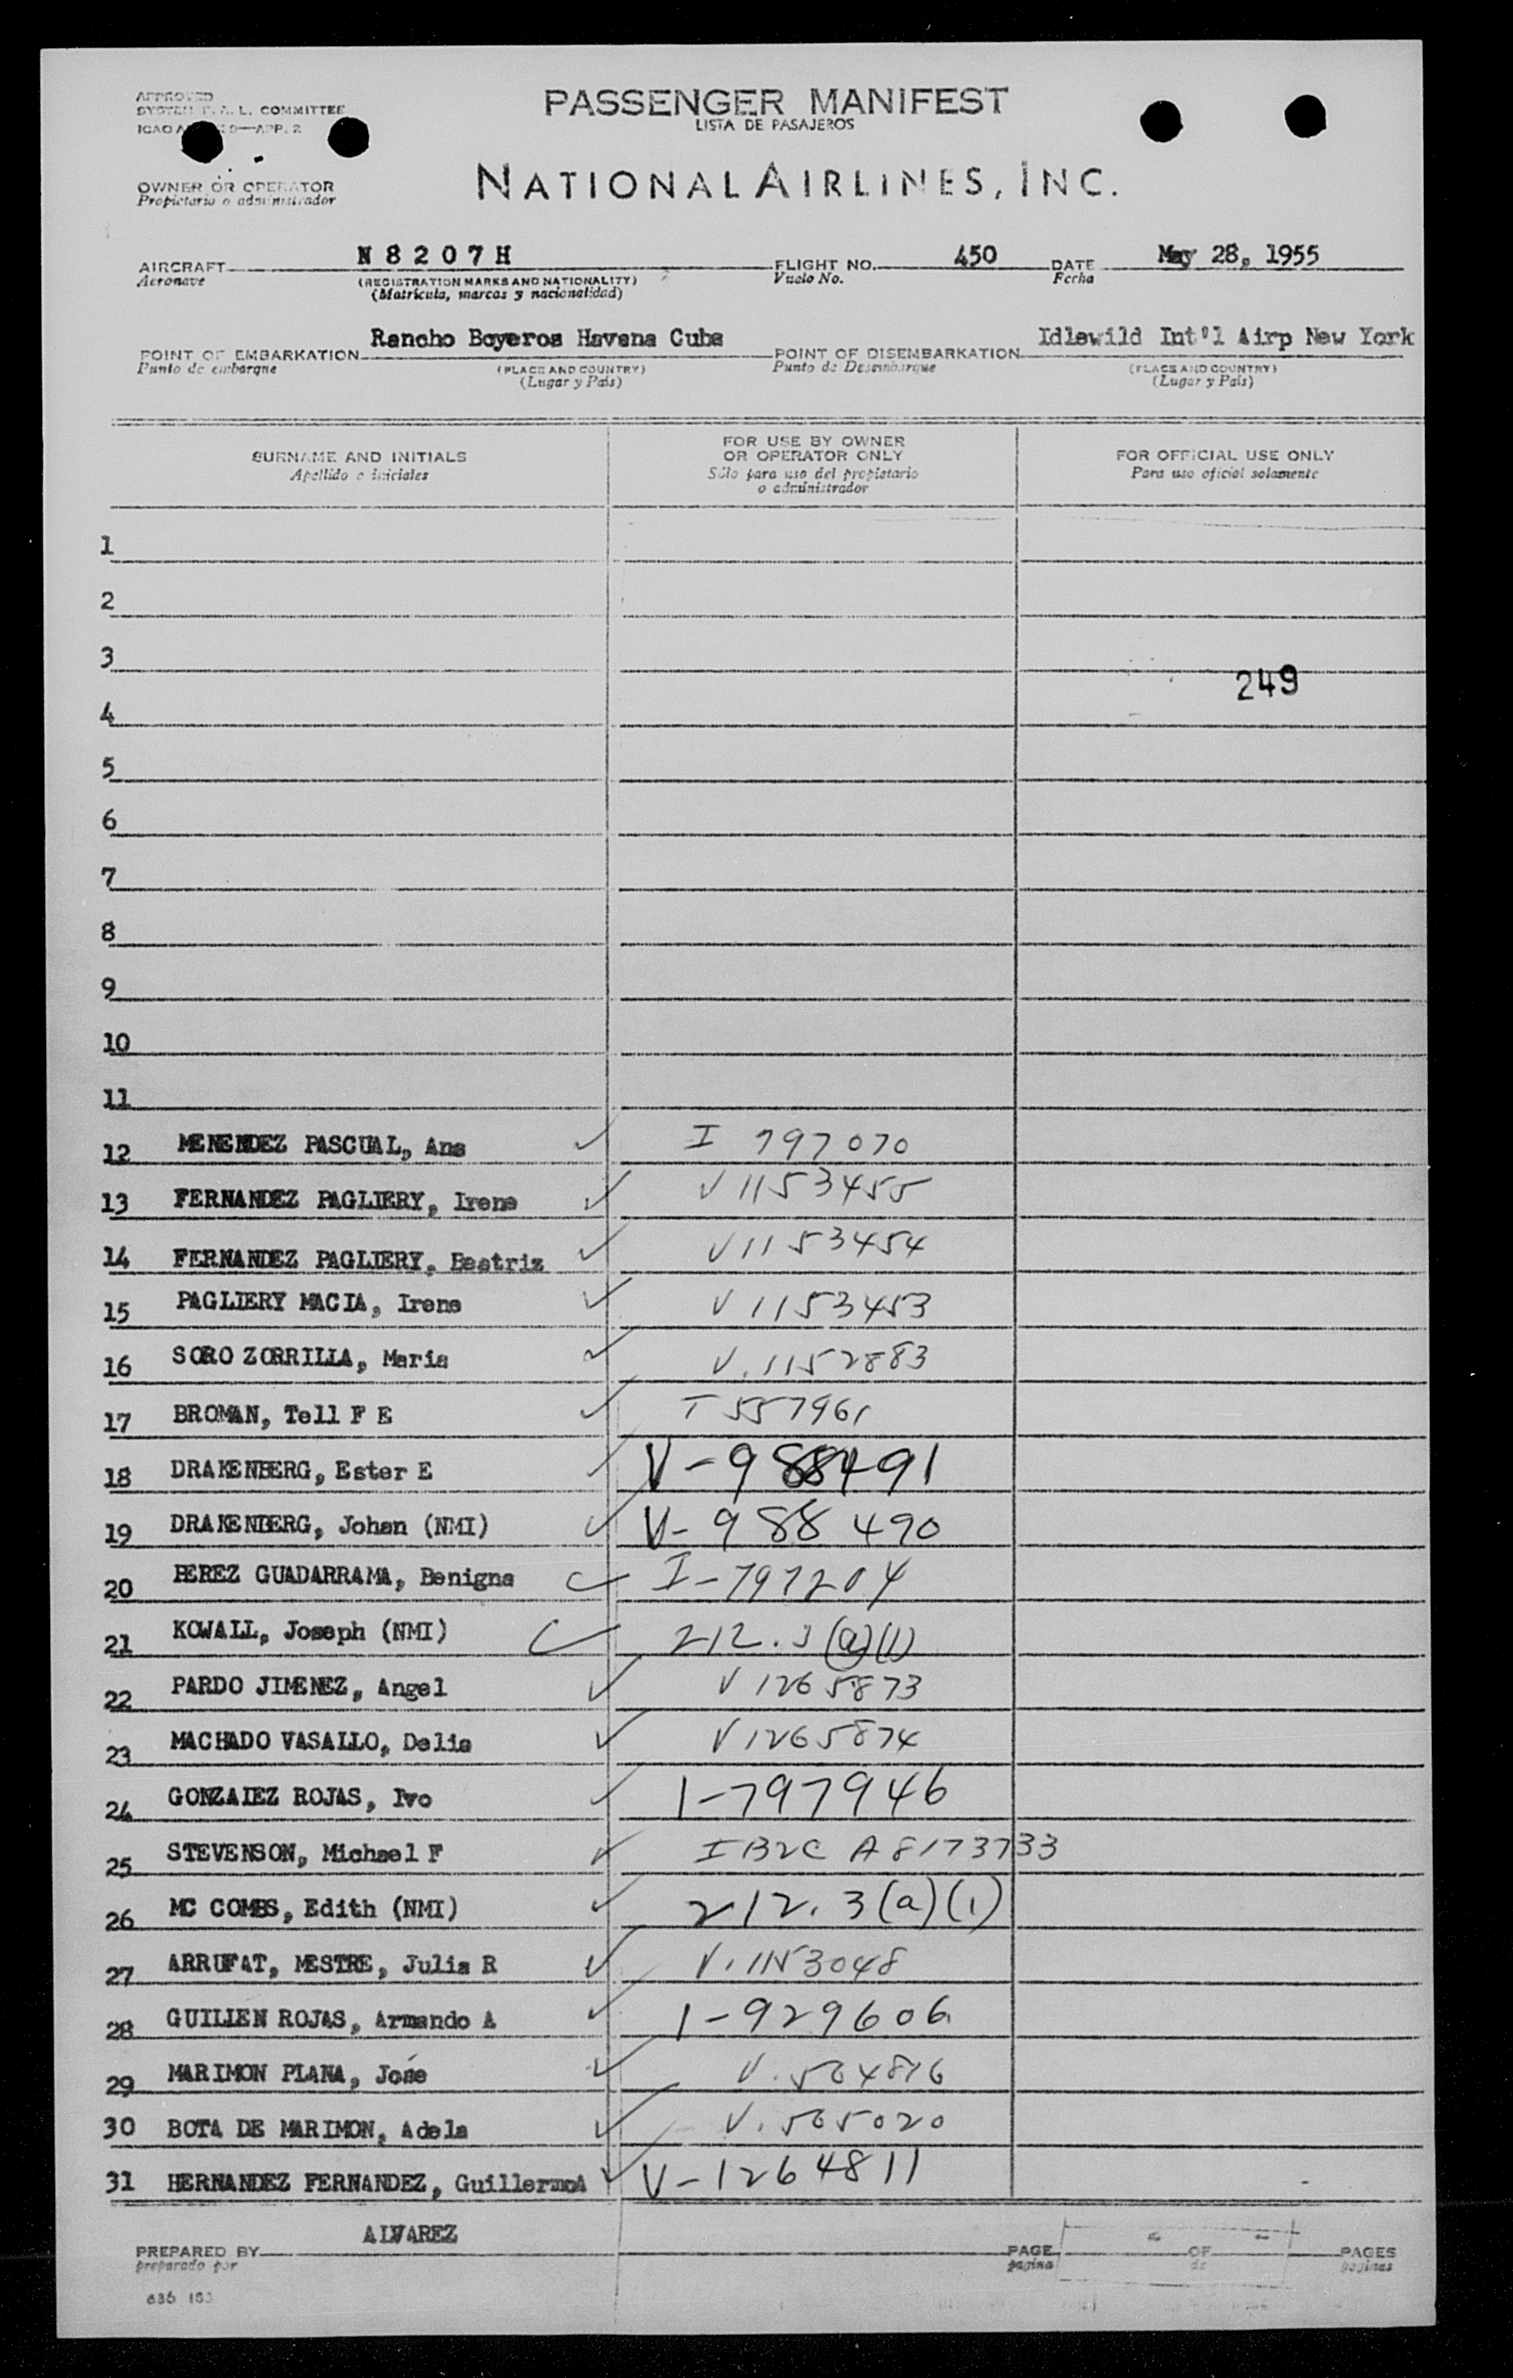 APPROVED
SYSTEM F.A.L. COMMITTEE
PASSENGER MANIFEST
LISTA DE PASAJEROS
OWNER OR OPERATOR
Propietario o administrador
NATIONAL AIRLINES, INC.
AIRCRAFT N8207H FLIGHT NO. 450 DATE May 28, 1955
Aeronave (REGISTRATION MARKS AND NATIONALITY) Vuelo No. Fecha
(Matrícula, marcas y nacionalidad)
POINT OF EMBARKATION Rancho Boyeros Havana Cuba POINT OF DISEMBARKATION Idlewild Int'l Airp New York
Punto de embarque (PLACE AND COUNTRY) Punto de Desembarque (PLACE AND COUNTRY)
(Lugar y País) (Lugar y País)
SURNAME AND INITIALS FOR USE BY OWNER OR OPERATOR ONLY FOR OFFICIAL USE ONLY
Apellido e iniciales Sólo para uso del propietario o administrador Para uso oficial solamente
1
2
3
249
4
5
6
7
8
9
10
11
12 MENENDEZ PASCUAL, Ana ✓ I 797070
13 FERNANDEZ PAGLIERY, Irene ✓ V1153455
14 FERNANDEZ PAGLIERY, Beatriz ✓ V1153454
15 PAGLIERY MACIA, Irene ✓ V1153453
16 SORO ZORRILLA, Maria ✓ V.1152883
17 BROMAN, Tell F E ✓ I 557961
18 DRAKENBERG, Ester E ✓ V-988491
19 DRAKENBERG, Johan (NMI) ✓ V-988490
20 PEREZ GUADARRAMA, Benigna ✓ I-797204
21 KOWALL, Joseph (NMI) ✓ 212.3(a)(1)
22 PARDO JIMENEZ, Angel ✓ V1265873
23 MACHADO VASALLO, Delia ✓ V1265874
24 GONZALEZ ROJAS, Ivo ✓ I-797946
25 STEVENSON, Michael F ✓ IB2C A8173733
26 MC COMBS, Edith (NMI) ✓ 212.3(a)(1)
27 ARRUFAT, MESTRE, Julia R ✓ V.1153048
28 GUILLEN ROJAS, Armando A ✓ I-929606
29 MARIMON PLANA, Jose ✓ V.504816
30 BOTA DE MARIMON, Adela ✓ V.505020
31 HERNANDEZ FERNANDEZ, GuillermoA ✓ V-1264811
PREPARED BY ALVAREZ PAGE OF PAGES
preparado por pagina de paginas